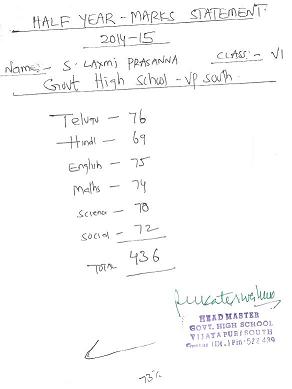 HALF YEAR - MARKS STATEMENT.
2014-15
Name:- S. LAXMI PRASANNA CLASS:- VI
Govt High School - VP South.
Telugu - 76
Hindi - 69
English - 75
Maths - 74
Science - 70
Social - 72
Total 436
HEAD MASTER
GOVT. HIGH SCHOOL
VIJAYAPURI SOUTH
Guntur (Dt.) Pin- 522 439
73%